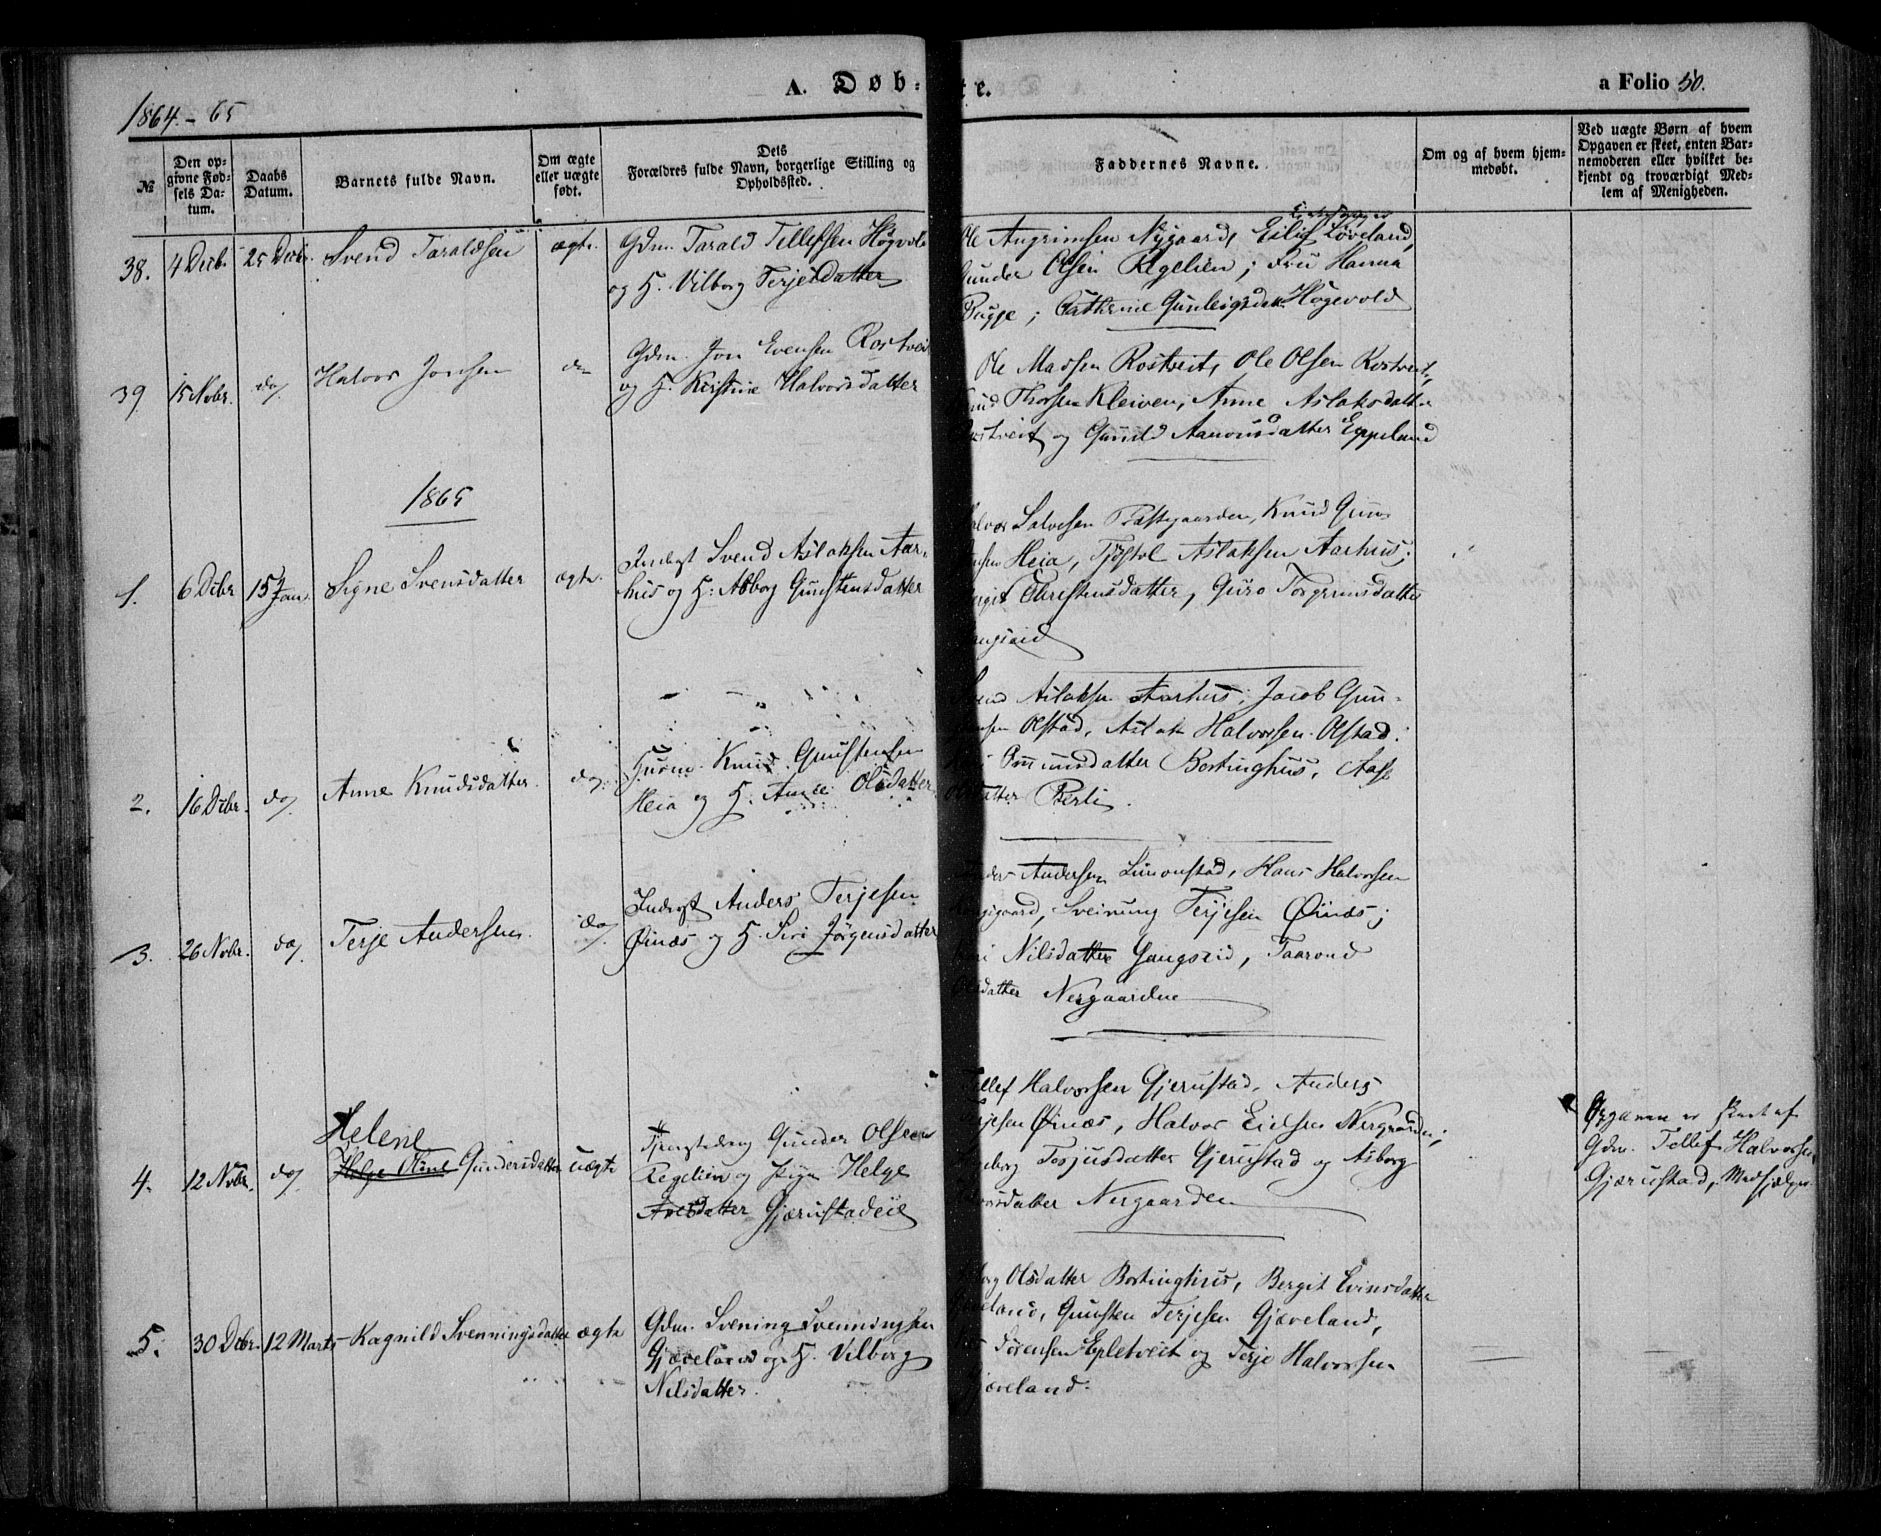 A. Døb-te.
a Folio 50.
1864.-65
№
Den opgivne Fødsels Datum.
Daabs Datum.
Barnets fulde Navn.
Om ægte eller uægte født.
Dets Forældres fulde Navn, borgerlige Stilling og Opholdssted.
Faddernes Navne.
Om og af hvem hjemmedøbt.
Ved uægte Børn af hvem Opgaven er skeet, enten Barnemoderen eller hvilket bekjendt og troværdigt Medlem af Menigheden.
38. 4 Decb. 25 Decbr. Svend Taraldsen ægte. Gdm. Tarald Tellefsen Høgvold
og H. Vilborg Terjesdatter
Ole Angrimsen Nygaard, Eilif Løveland,
Gunder Olsen Regelien; Fru Hanna
Bugge; Cathrine Gunleigsdatt. Høgevold
39. 15 Nobr. do/ Halvor Jonsen do Gdm. Jon Evensen Rostveit
og H. Kirstine Halvorsdatter
Ole Madsen Rostveit, Ole Olsen Rostveit,
Knud Thorsen Kleiven, Anne Aslaksdatter
Rostveit og Gunild Aanonsdatter Eppeland
1865
1. 6 Dcbr 15 Jan. Signe Svensdatter ægte. Inderst Svend Aslaksen Aar-
hus og H. Asborg Gunstensdatter
Halvor Salvesen Præstgaarden, Knud Gun-
stensen Heia, Tjøstol Aslaksen Aarhus;
Christensdatter, Guro Torgrimsdatter
Gangseid
2. 16 Dcbr. do/ Anne Knudsdatter. do/ Husm. Knud Gunstensen
Heia og H. Anne Olsdatter
Svend Aslaksen Aarhus, Jacob Gun-
Olstad, Aslak Halvorsen Olstad.
Omundsdatter Bortinghus, Aase
Olsdatter Berli.
3. 26 Nobr. do/ Terje Andersen. do/ Inderst Anders Terjesen
Øinæs og H. Siri Jørgensdatter
Anders Andersen Simonstad, Hans Halvorsen
Sveinung Terjesen Øinæs;
Nilsdatter Gangseid, Taarond
Olsdatter Nergaarden
4. 12 Nobr. do/ Helene
Helge Oline Gundersdatter uægte Tjenestedreng Gunder Olsen
Regelien og pigen Helge
Avesdatter Gjerustadeie
Tellef Halvorsen Gjerustad, Anders
Terjesen Øinæs, Halvor Eielsen Nergaarden;
Tosjusdatter Gjerustad og Asborg
datter Nergaarden
Opgaven er skeet af
Gdm. Tellef Halvorsen
Gjærustad, Medhjælper
5. 30 Dcbr. 12 Marts Ragnild Svenningsdatter ægte Gdm. Svening Svenningsen
Gjæveland og H. Vilborg
Nilsdatter.
Olsdatter Bortinghus, Bergit Evinsdatter
Gjæveland, Gunsten Terjesen Gjæveland,
Sørensen Epletveit og Terje Halvorsen
Gjæveland.